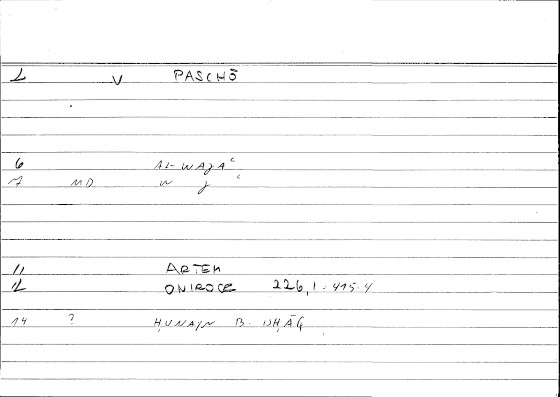 1 V PASCHŌ
6 AL-WAJAʿ
7 MD W J ʿ
11 ARTEM
12 ONIROCR 226,1 = 415.4
14 ? ḤUNAYN B. ISḤĀQ